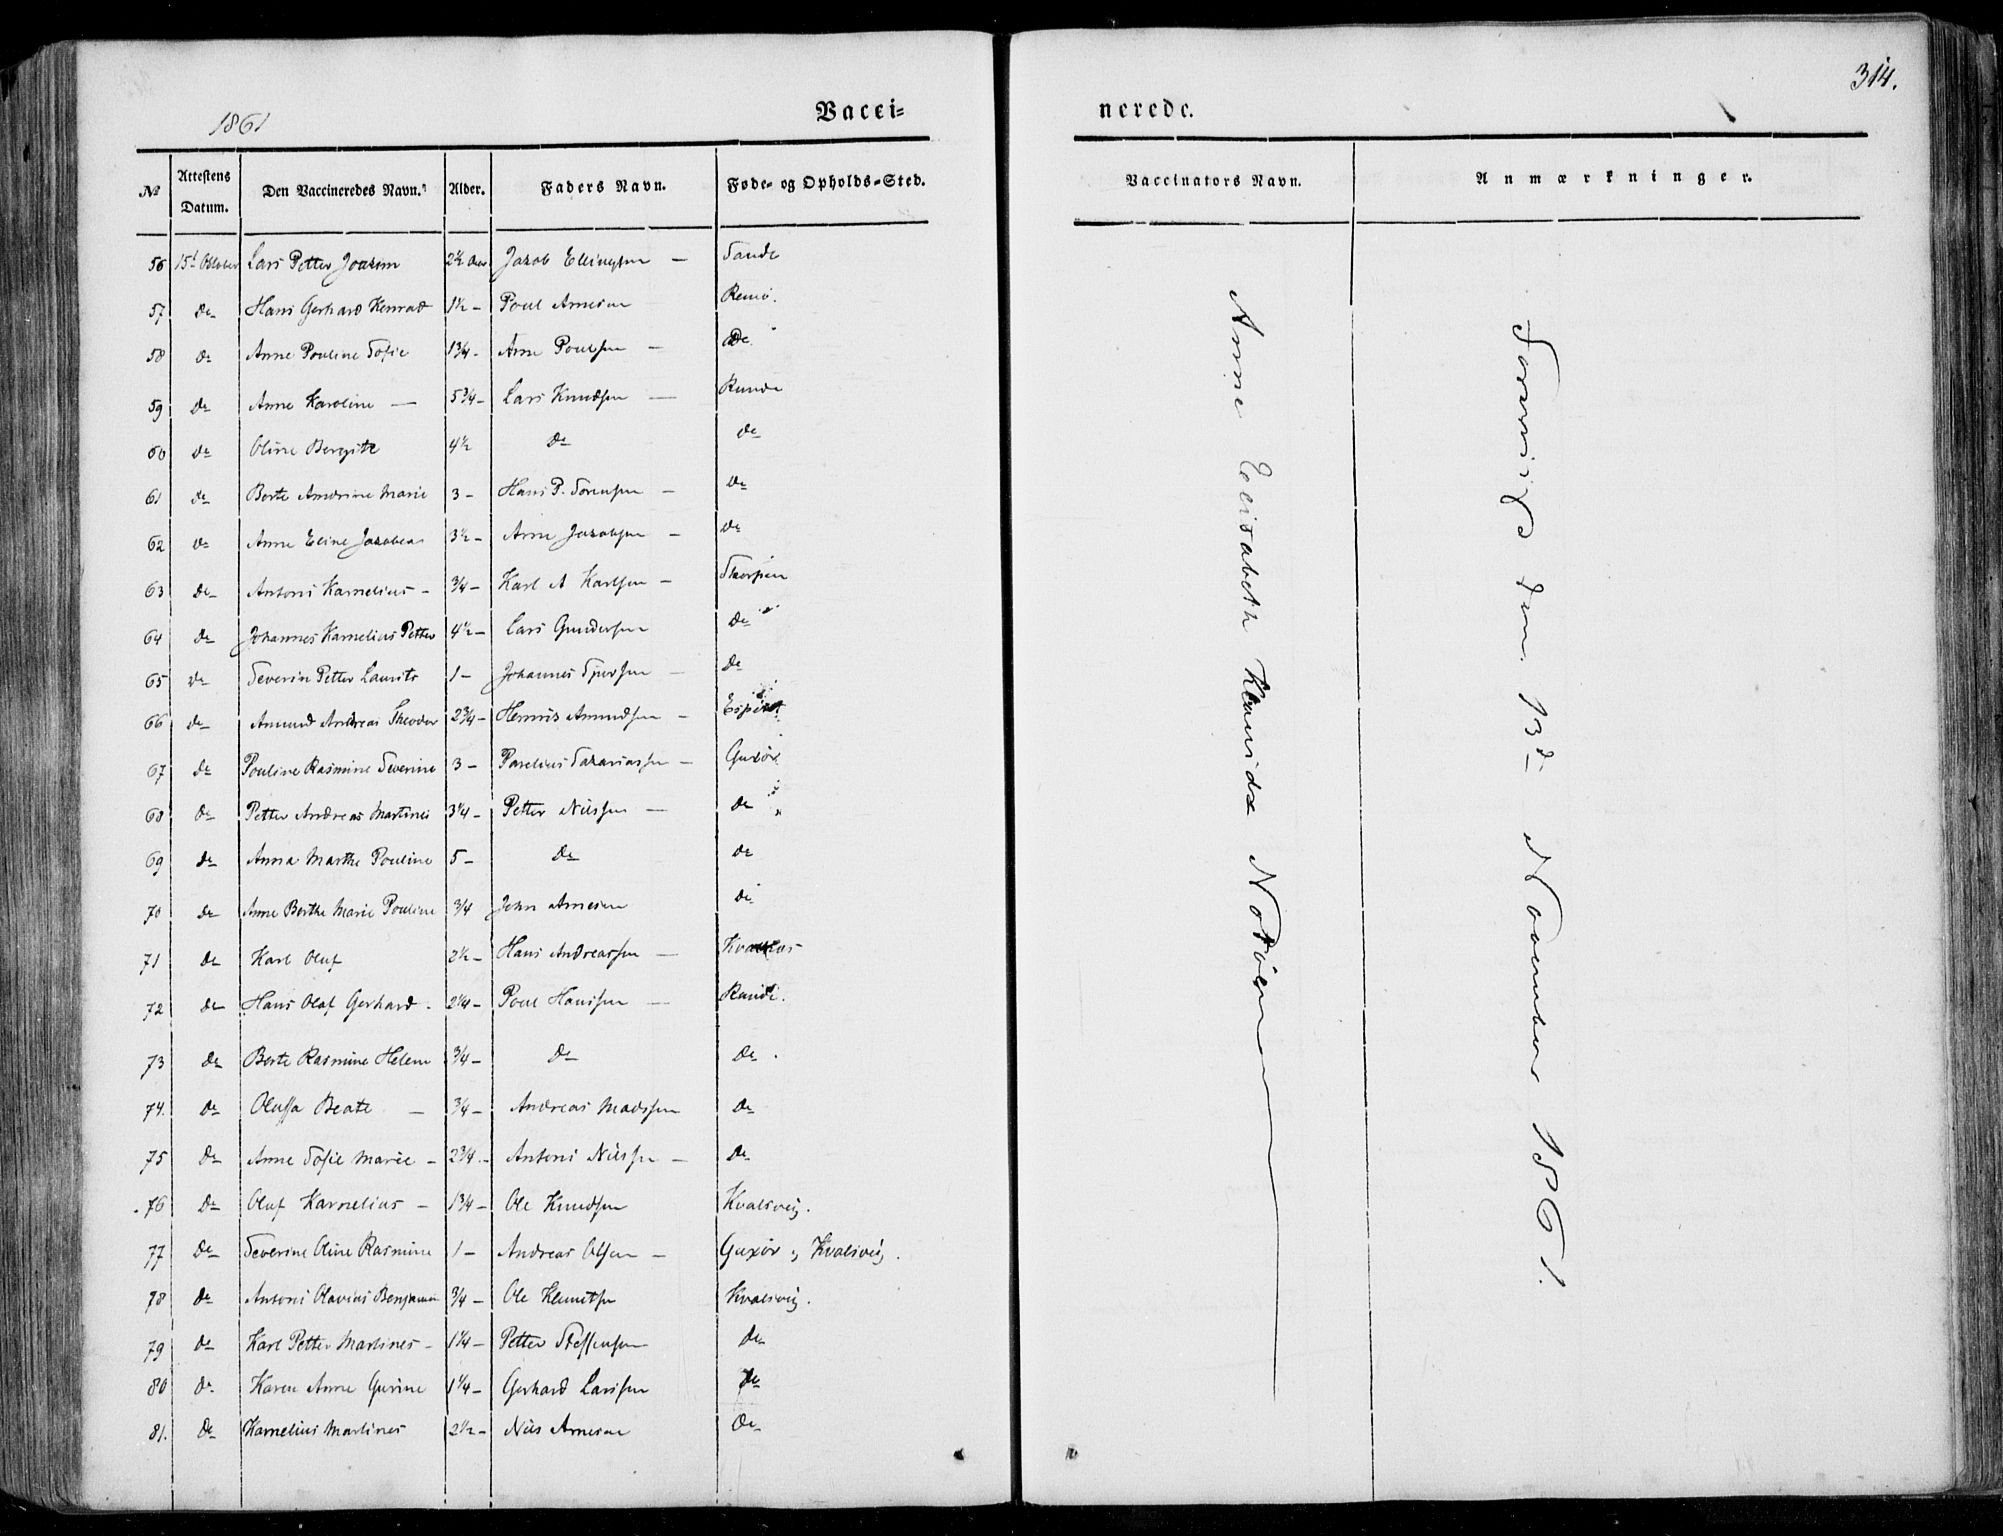 314.
1861
Vacci=
nerede.
No
Attestens Datum.
Den Vaccineredes Navn.
Alder.
Faders Navn.
Føde- og Opholds-Sted.
Vaccinators Navn.
Anmærkninger.
56 15d October Lars Petter Joakim 2½ Aar Jakob Ellingsen — Sande
57 do Hans Gerhard Konrad 1½ - Poul Arnesen Remø.
58 do Anne Pouline Sofie 1¾ - Arne Poulsen — do
59 do Anne Karoline — 5¾ - Lars Knudsen — Runde
60 do Oline Bergitte 4½ do do
61 do Berte Andrine Marie 3 - Hans P. Sørensen — do
62 do Anne Eline Jakobea 3½ - Arne Jakobsen — do
63 do Antoni Kornelius - ¾ - Karl A Karlsen —
64 do Johannes Kornelius Petter 4½ - Lars Gundersen do
65 do Severin Petter Laurits 1 - Johannes — do
66 do Amund Andreas Theodor 2¾ - Henrik Amundsen —
67 do Pouline Rasmine Severine 3 - Sakariassen — Guxør
68 do Petter Andreas Martines 3¼ - Petter Nilssen — do
69 do Anna Marthe Pouline 5 - do do
70 do Anne Berthe Marie Pouline ¾ John Arnesen do
71 do Karl Oluf 2½ - Hans Andreassen —
72 do Hans Olaf Gerhard - 2¼ - Poul Hanssen — Runde.
73 do Berte Rasmine Helene ¾ - do do
74. do Olufsa Beate — ¾ - Andreas Madssen do
75 do Anne Sofie Marie - 2¾ - Antoni Nilssen — do
76 do Oluf Kornelius - 1¾ - Ole Knudsen Kvalsvig.
77 do Severine Oline Rasmine 1 - Andreas Olsen — Guxør og Kvalsvig.
78 do Antoni Olavius Benjamin ¾ - Ole Kvalsvig.
79 do Karl Petter Martines - 1¼ - Petter Steffensen do
80 do Karen Anne Gurine 1¼ - Gerhard Larssen do
81. do Kornelius Martines 2½ - Nils Arnesen do
Anne Elisabeth
den 13de November 1861.